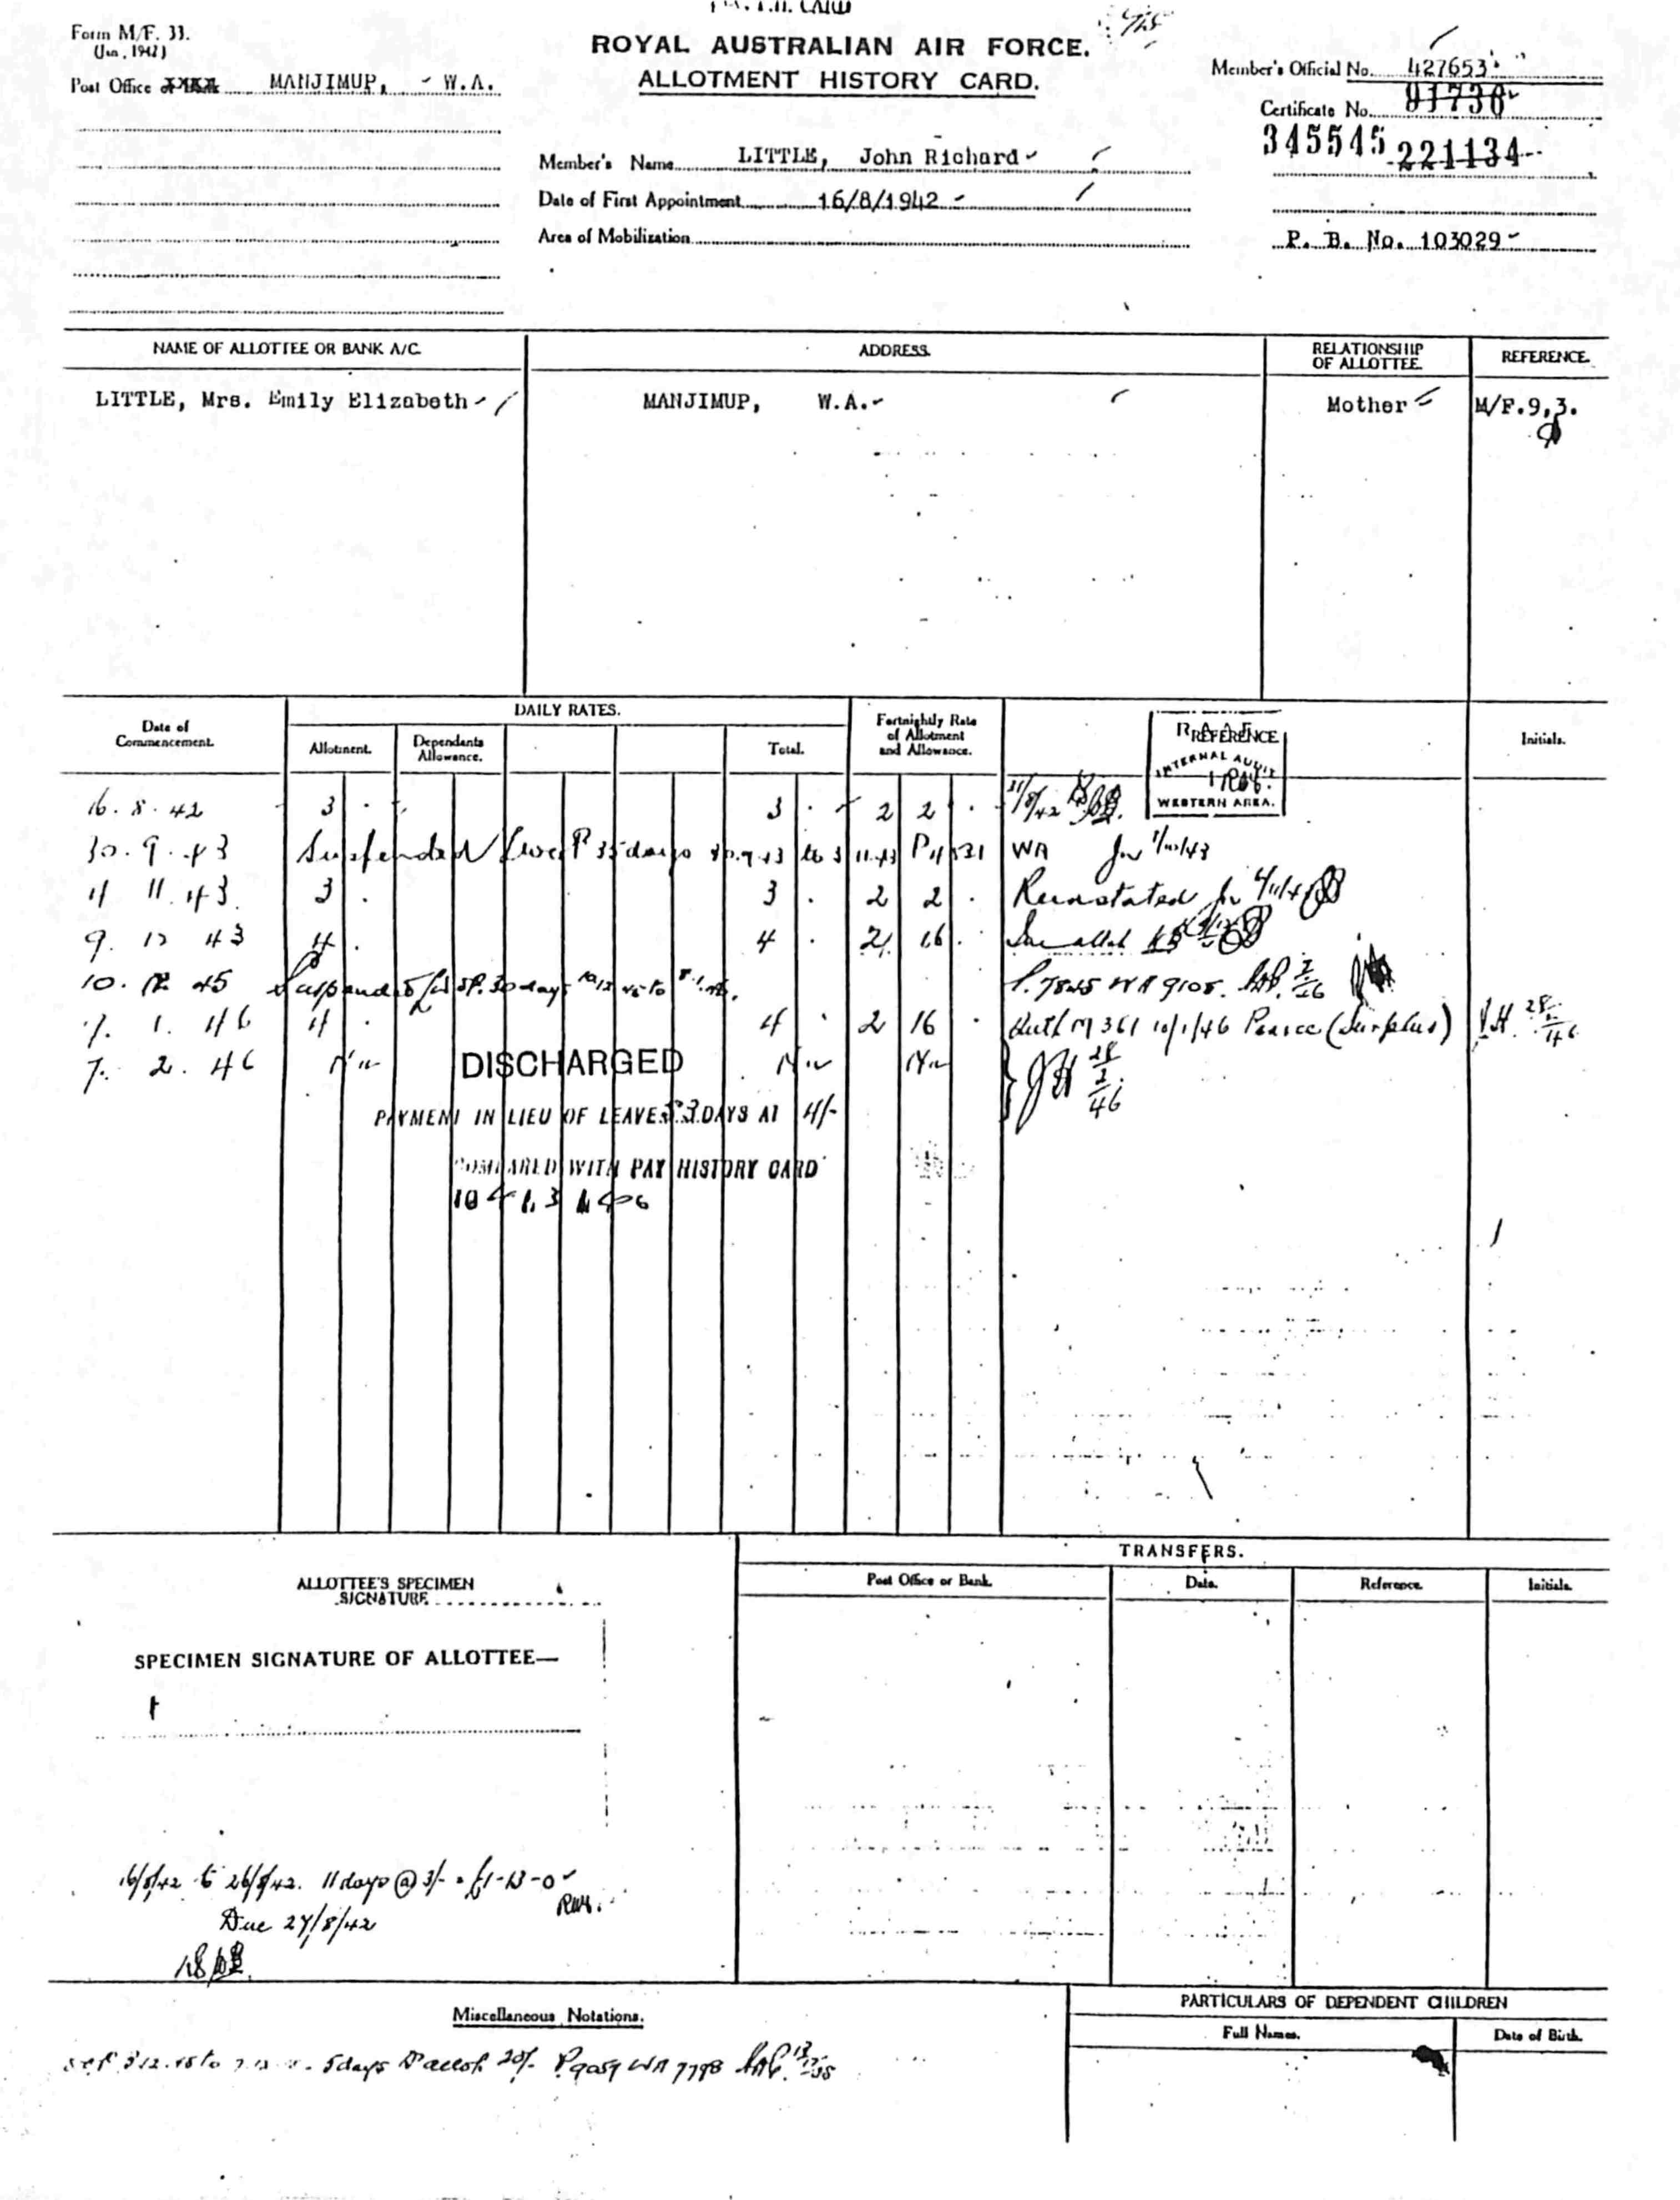 Form M/F. 33.
(Jan., 1942)
Post Office MANJIMUP, W.A.
ROYAL AUSTRALIAN AIR FORCE.
ALLOTMENT HISTORY CARD.
Member's Official No. 427653
Certificate No. 91730
345545 221134
P. B. No. 103029
Member's Name LITTLE, John Richard
Date of First Appointment 16/8/1942
Area of Mobilization
NAME OF ALLOTTEE OR BANK A/C. ADDRESS. RELATIONSHIP OF ALLOTTEE. REFERENCE.
LITTLE, Mrs. Emily Elizabeth MANJIMUP, W.A. Mother M/F.9,3.
Date of Commencement. DAILY RATES. Fortnightly Rate of Allotment and Allowance. REFERENCE Initials.
Allotment. Dependants Allowance. Total.
INTERNAL AUDIT
WESTERN AREA.
16. 8. 42 3 . 3 . 2 2 . 31/8/42
30. 9. 43 Suspended 35 days WA 1/10/43
4 11. 43 3 . 3 . 2 2 . Reinstated
9. 12 43 4 . 4 . 2 16 .
10. 12 45 Suspended 30 days to WA 9108.
7. 1. 46 4 . 4 . 2 16 . Auth M 361 10/1/46 Pearce (Surplus) 28/2/46
7. 2. 46 Nil DISCHARGED Nil Nil 28/2/46
PAYMENT IN LIEU OF LEAVE 53 DAYS AT 4/-
COMPARED WITH PAY HISTORY CARD
TRANSFERS.
ALLOTTEE'S SPECIMEN SIGNATURE
Post Office or Bank. Date. Reference. Initials.
SPECIMEN SIGNATURE OF ALLOTTEE—
16/8/42 to 26/8/42. 11 days @ 3/- = £1-13-0
Due 27/8/42
Miscellaneous Notations.
5 days allot 20/- WA 7798
PARTICULARS OF DEPENDENT CHILDREN
Full Names. Date of Birth.